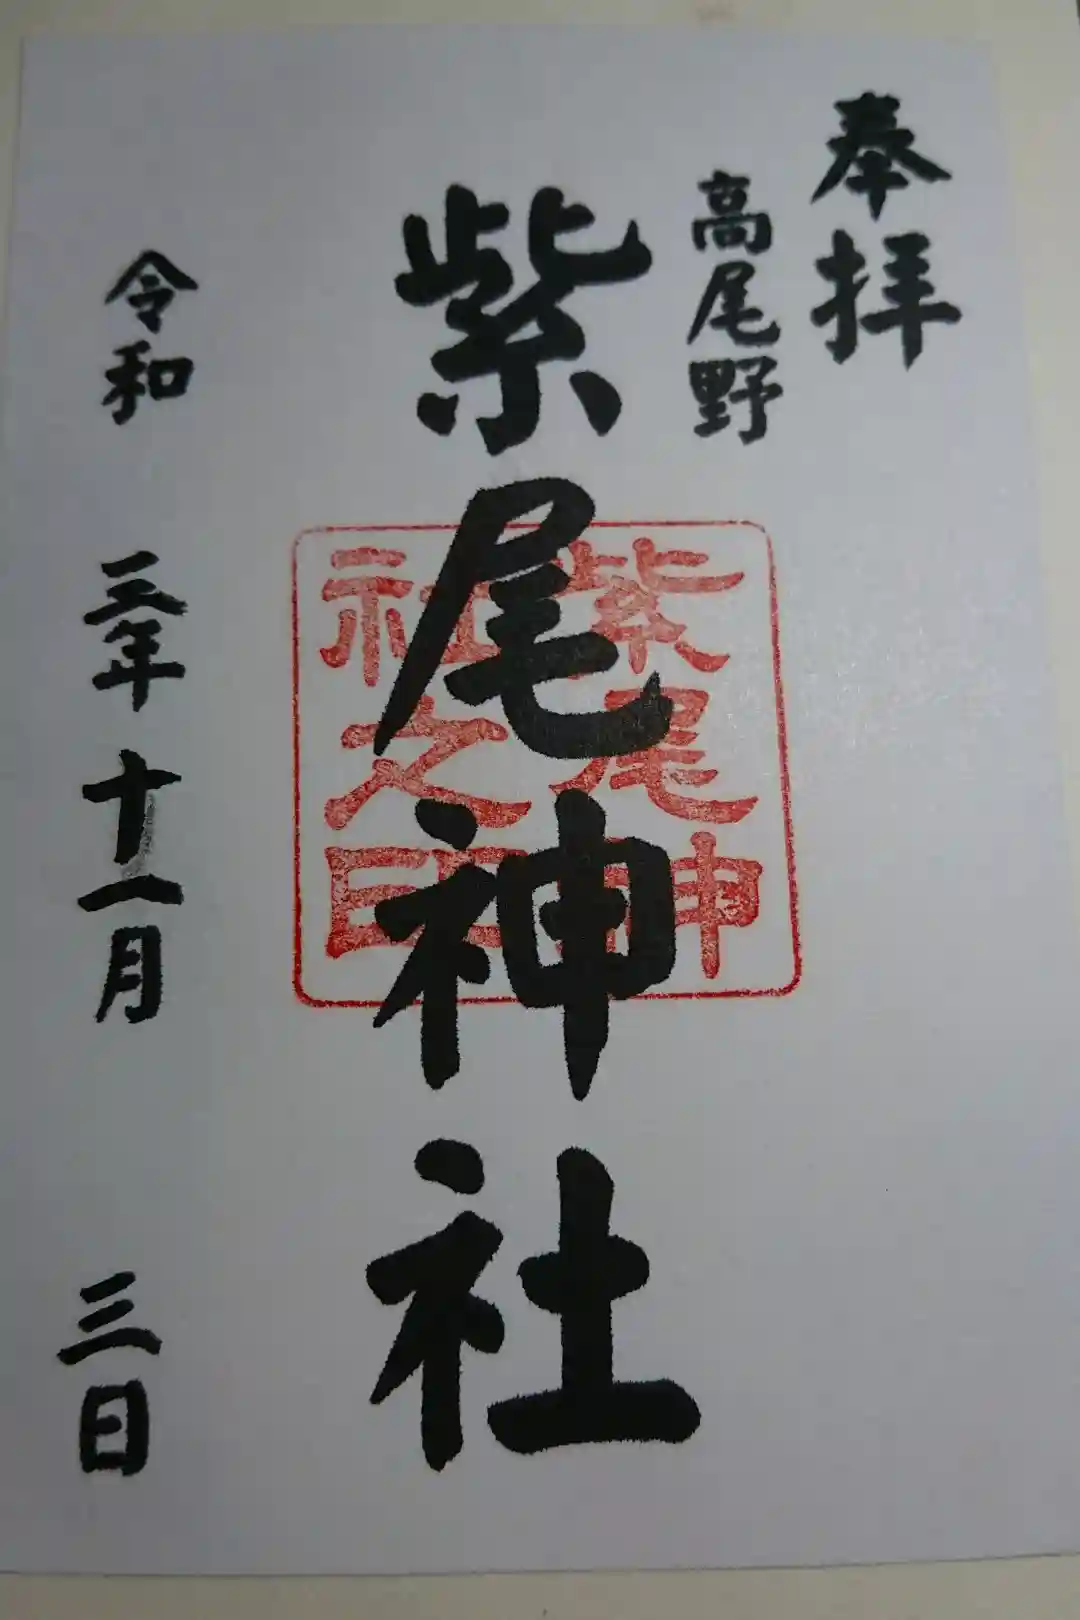 奉拝
高尾野
紫尾神社
紫尾神
社之印
令和三年十一月三日